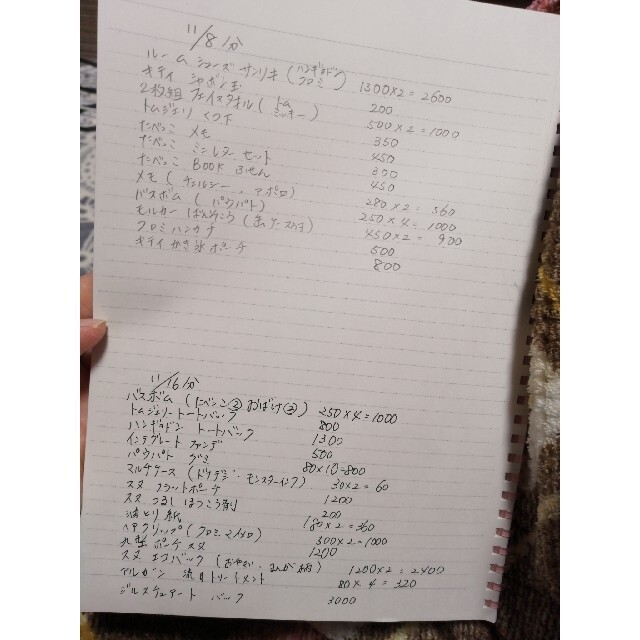 11/8分
ルームシューズ サンリオ (ハンギョドン クロミ) 1300×2=2600
キティ シャボン玉 200
2枚組 フェイスタオル (トム ミッキー) 500×2=1000
トムジェリ くつ下 350
たべっこ メモ 450
たべっこ ミニレターセット 300
たべっこ BOOK ふせん 450
メモ (チェルシー、アポロ) 280×2=560
バスボム (パウパト) 250×4=1000
モルカー ばんそうこう (缶ケース入り) 450×2=900
クロミハンカチ 500
キティ かき氷 ポーチ 800
11/16分
バスボム (たべっこ② おばけ②) 250×4=1000
トムジェリー トートバック 800
ハンギョドン トートバック 1300
インテグレート ファンデ 500
パウパト グミ 80×10=800
マルチケース (ドナデジ・モンスターインク) 30×2=60
スヌ フラットポーチ 1200
スヌ つるし ほうこう剤 200
油とり紙 180×2=360
ヘアクリップ (クロミ、マイメロ) 500×2=1000
丸型 ポーチ スヌ 1200
スヌ エコバック (おやつ、まんが柄) 1200×2=2400
アルガン 流さないトリートメント 80×4=320
ジルスチュアート バック 3000